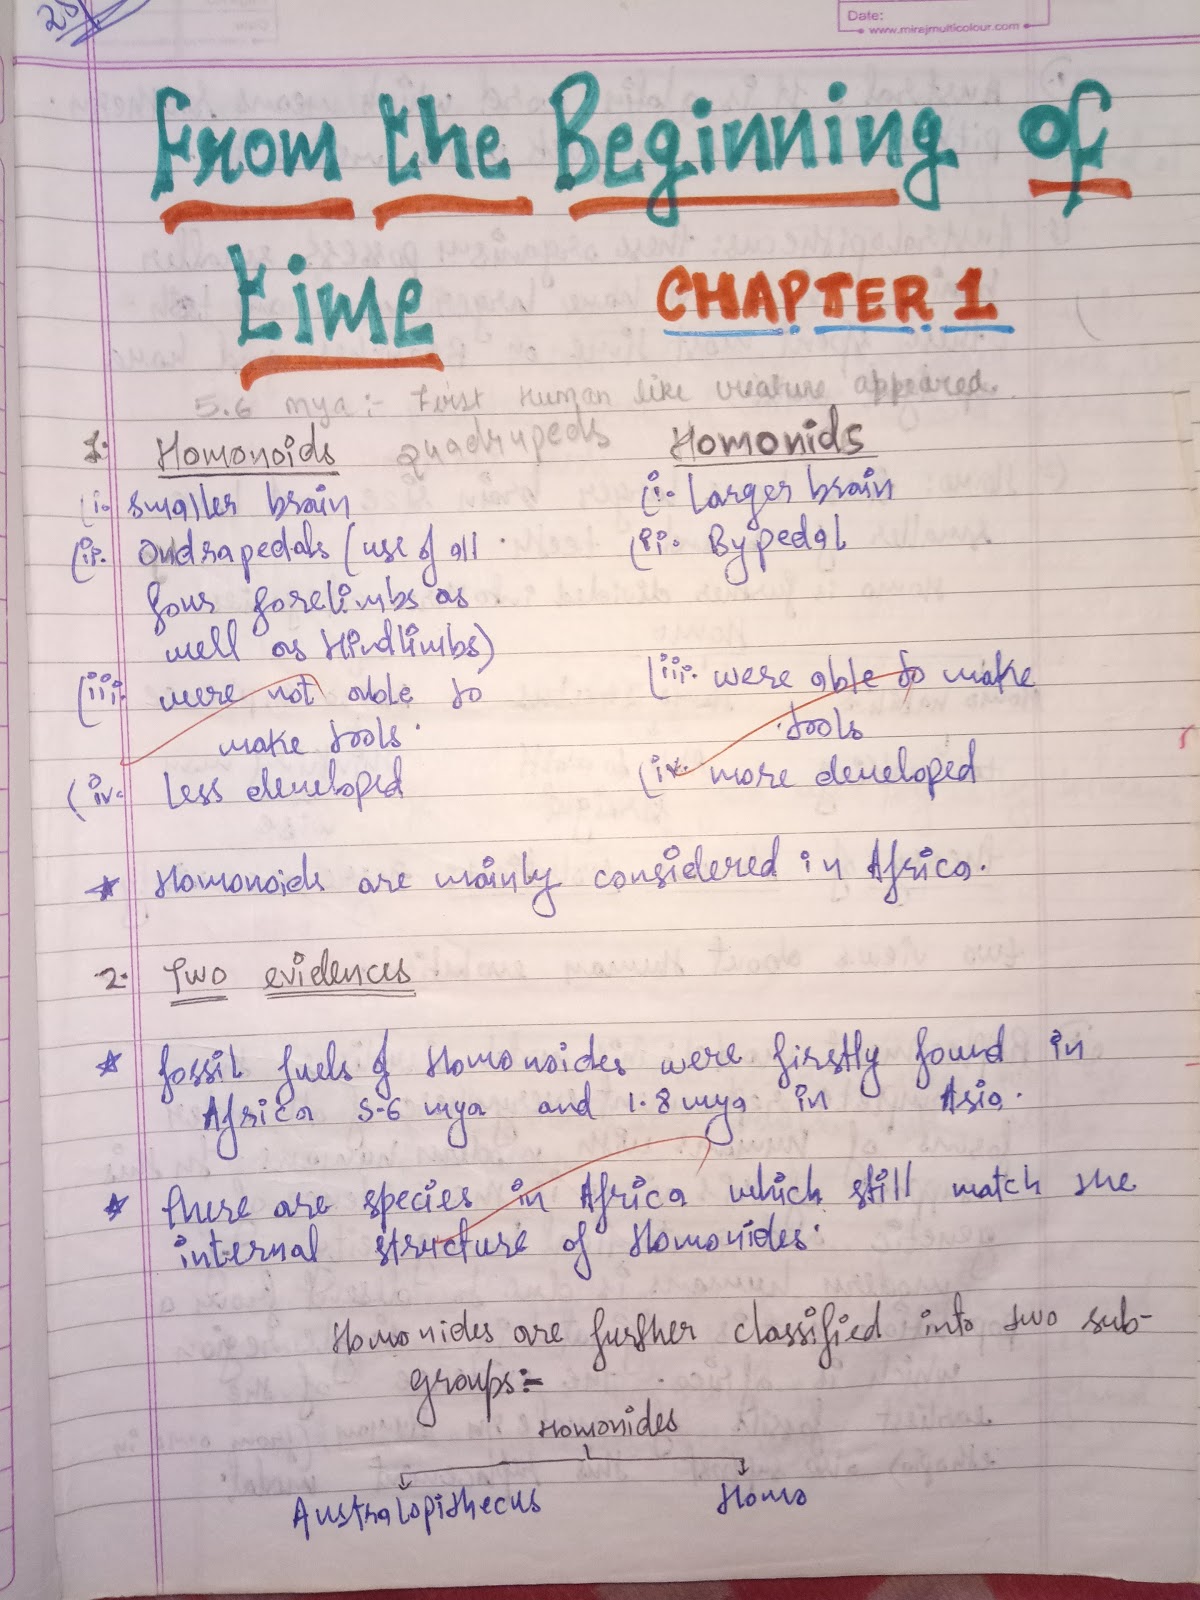 25
Date:
www.mirajmulticolour.com
From the Beginning of
time CHAPTER 1
5.6 mya :- First Human like creature appeared.
1. Homonoids quadrupeds Homonids
(i. smaller brain (i. Larger brain
(ii. Oudrapedals (use of all (ii. Bypedal
four forelimbs as
well as Hindlimbs)
(iii. were not able to (iii. were able to make
make tools. tools
(iv. Less developed (iv. more developed
* Homonoids are mainly considered in Africa.
2. Two evidences
* fossil fuels of Homonoides were firstly found in
Africa 5-6 mya and 1.8 mya in Asia.
* there are species in Africa which still match the
internal structure of Homonides.
Homonides are further classified into two sub-
groups:-
Homonides
Australopithecus Homo